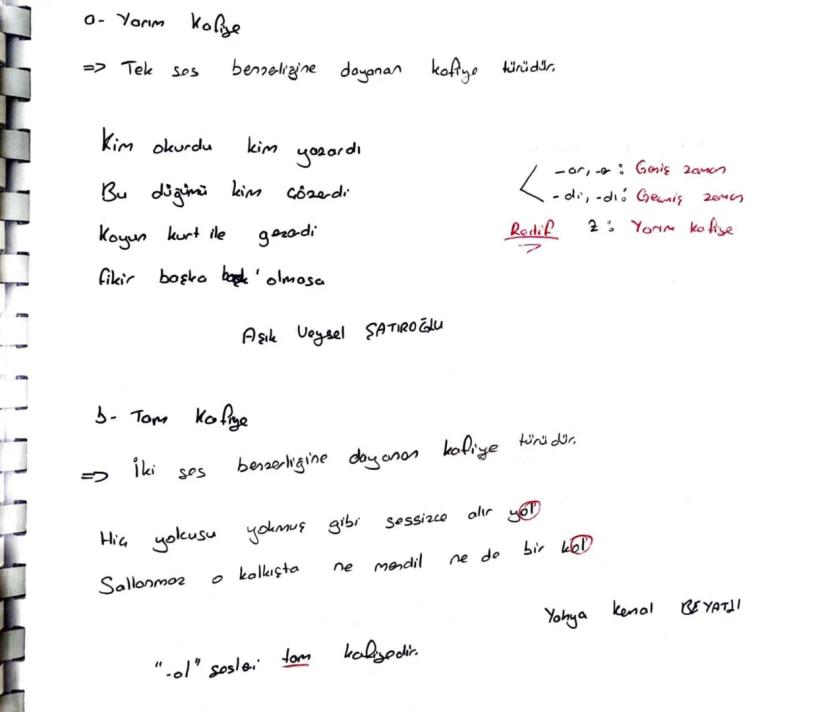 a- Yarım Kafiye
=> Tek ses benzerliğine dayanan kafiye türüdür.
Kim okurdu kim yazardı
Bu düğümü kim çözerdi
Koyun kurt ile gezerdi
fikir başka başk' olmasa
-ar, -e : Geniş zaman
-di, -dı : Geçmiş zaman
Redif z : Yarım kafiye
Aşık Veysel ŞATIROĞLU
b- Tam Kafiye
=> İki ses benzerliğine dayanan kafiye türüdür.
Hiç yokcusu yokmuş gibi sessizce alır yol
Sallanmaz o kalkışta ne mendil ne de bir kol
Yahya Kemal BEYATLI
"-ol" sesleri tam kafiyedir.